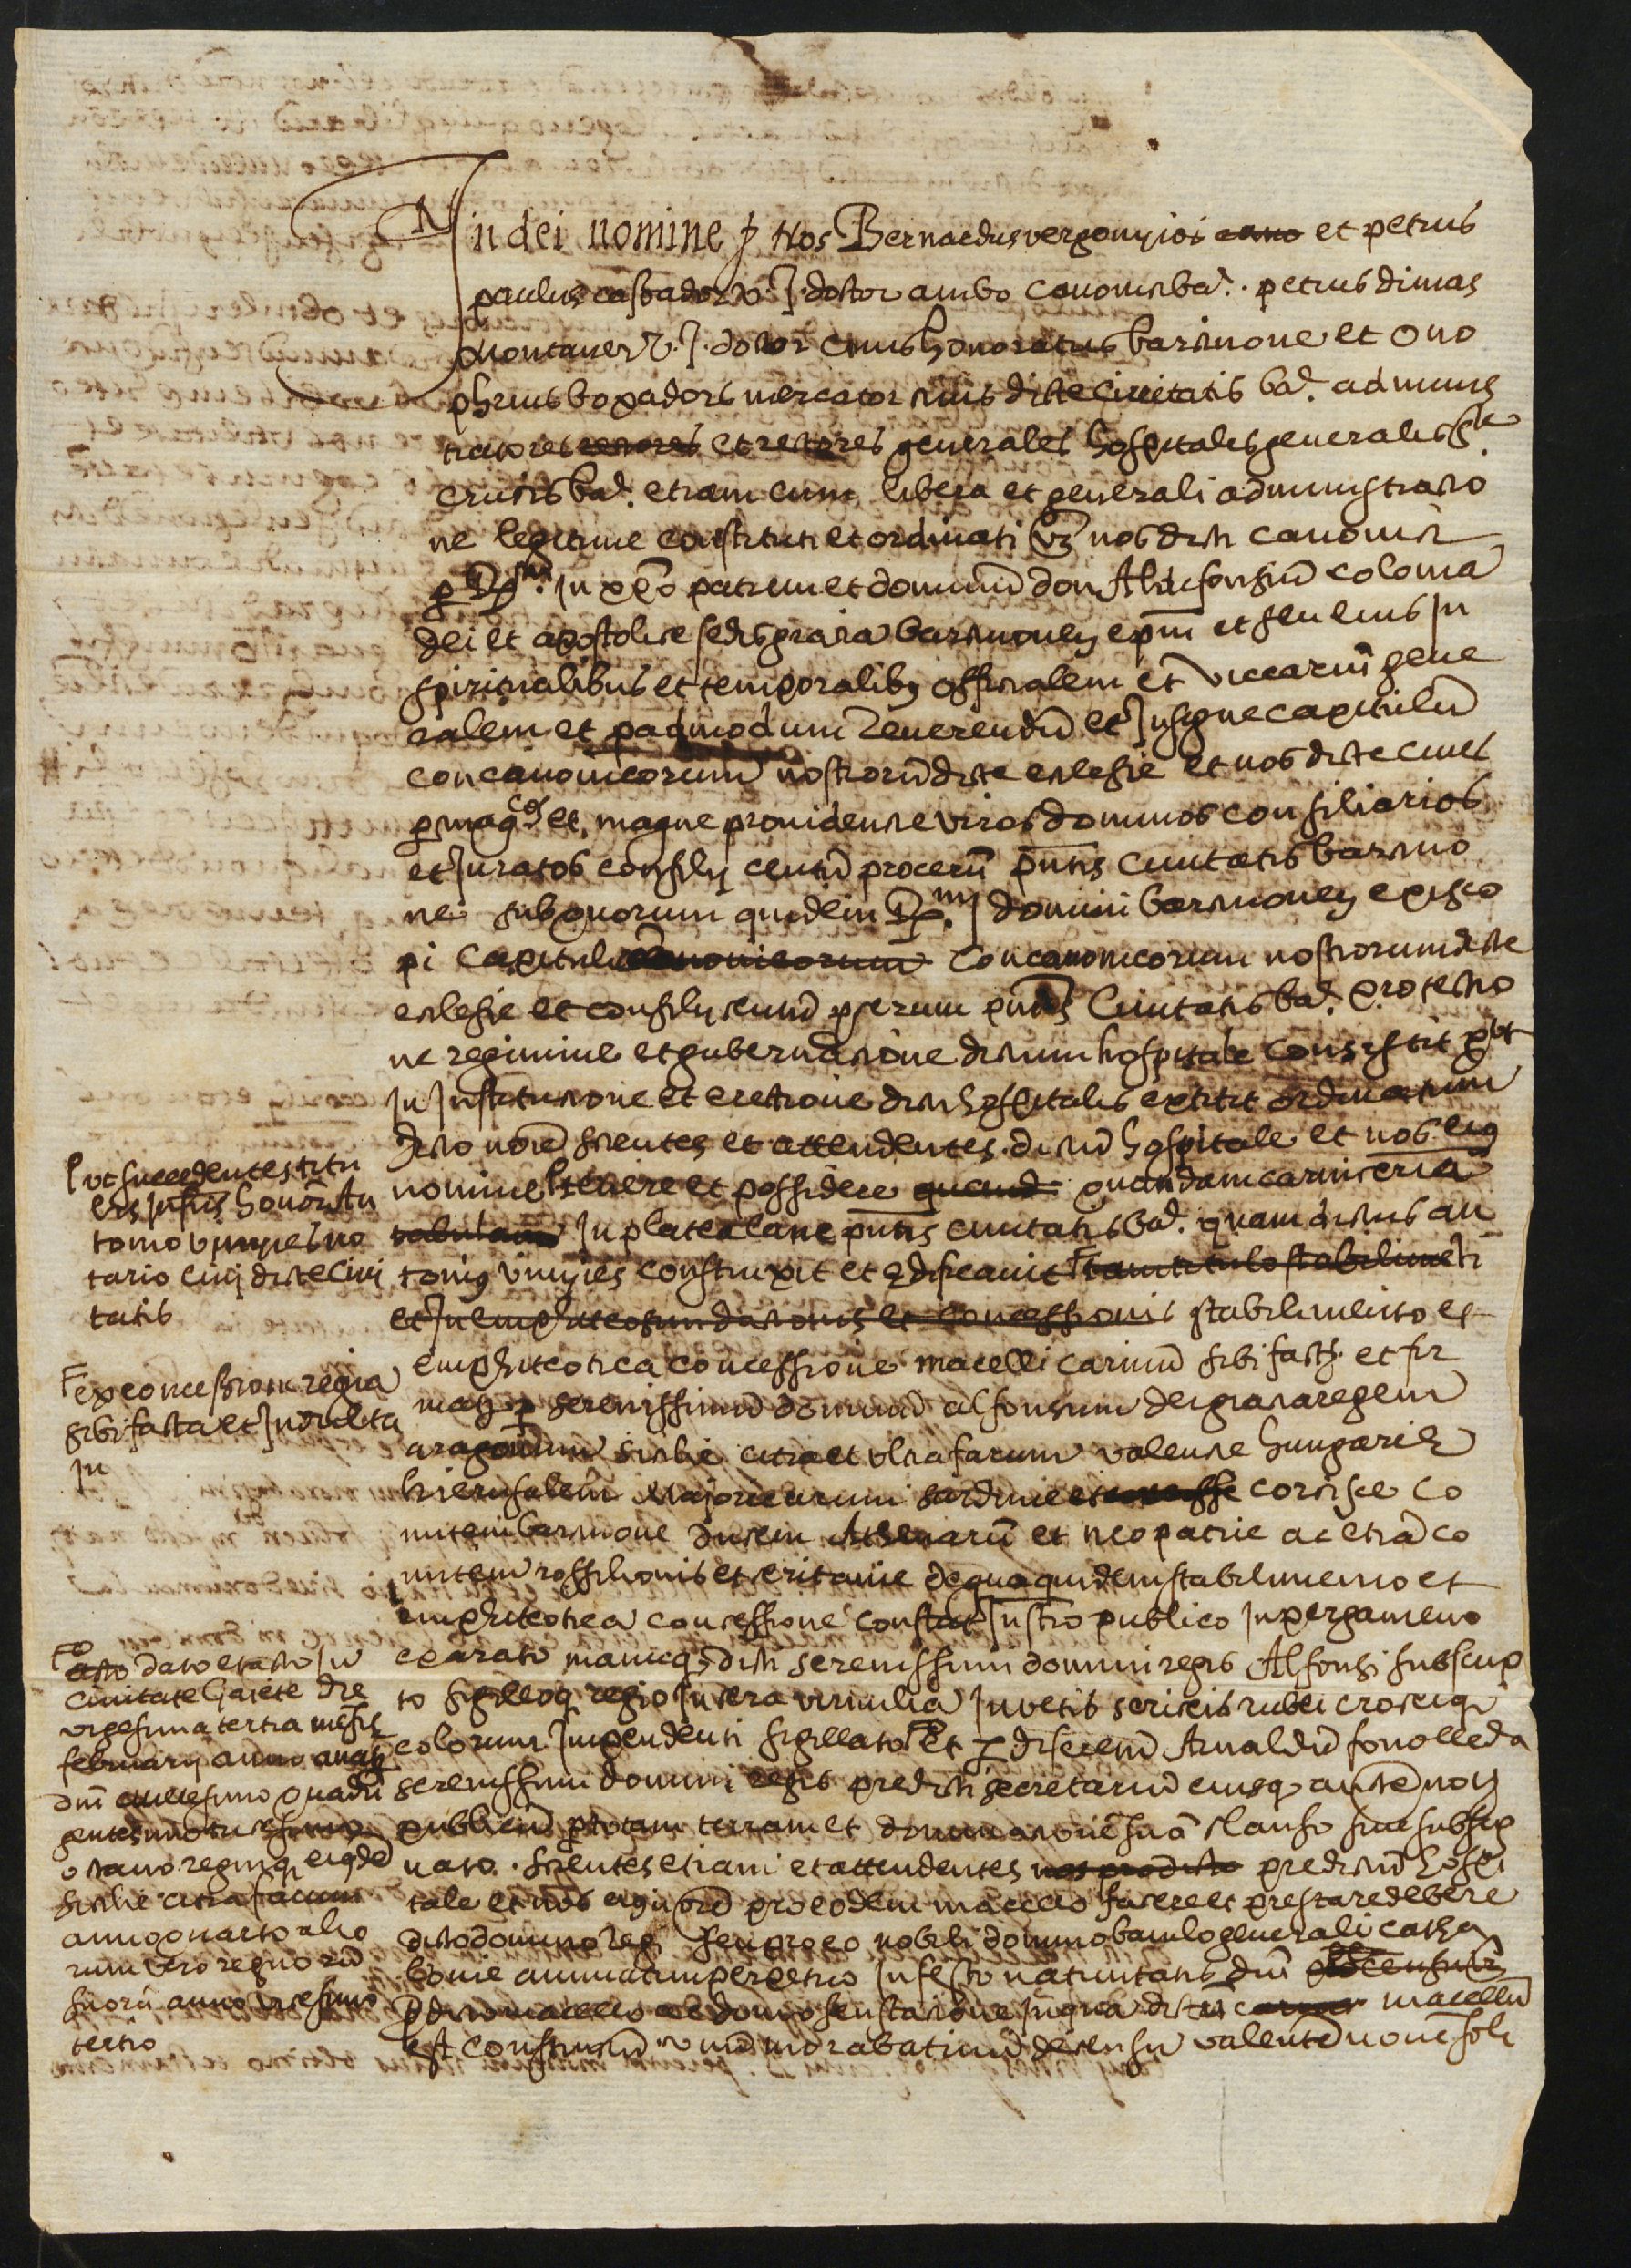 In dei nomine Nos Bernardus vergonyios cano et petrus
paulus casador V. J. doctor ambo canonici ba. petrus dimas
Montaner V. J. doctor civis honoratus barcinone et Ono
phrius bopadors mercator civis dicte civitatis ba. adminis
tratores rectores et rectores generales hospitalis generalis ste
crucis ba. etiam cum libera et generali administratio
ne legitime constituti et ordinati vz nos dicti canonici
p R.m in xpo patrem et dominū don Aldefonsū coloma
dei et apostolice sedis gratia barcinoneñ epm et seu eius in
spiritualibus et temporalibus officialem et viccariū gene
ralem et p admodum Reverendū et Insigne capitulū
concanonicorum nostrorū dicte eclesie et nos dicti cives
p magcos et magne providencie viros dominos consiliarios
et Juratos consilij centū procerū pntis civitatis barcino
ne sub quorum quidem R.mi domini barcinoneñ episco
pi capituli canonicorum concanonicorum nostrorum dicte
eclesie et consilij centū pcerum pntis Civitatis ba. protectio
ne regimine et gubernatione dictum hospitale consistit put
in Institutione et erectione dicti hospitalis extitit ordinatum
Dicto noie scientes et attendentes dictū hospitale et nos eius
nomine tenere et possidere quand quandam carniceriā
tabulam In platea lane pntis civitatis ba. quam dictus an
tonius vinyies construxit et edificavit tam titulo stabilimeti
et In emphiteosim dationis et concessionis stabilimento et
emphiteotica concessione macelli carniū sibi fact. et fir
mat. p serenissimū dominū alfonsum dei gratia regem
aragonum sicilie citra et ultra farum valencie hungarie
hierusalem Majoricarum sardinie et corsice co
mitem barcinone ducem Athenarū et neopatrie ac etiā co
mitem rossilionis et ceritanie de qua quidem stabilimento et
emphiteotica concessione constat Instro publico in pergameno
exarato manuq dicti serenissimi domini regis Alfonsi subscrip
to sigilloq regio In cera vermilia In vetis sericeis rubei croceiq
colorum Impendenti sigillato et p discretū Arnaldū fonolleda
serenissimi domini regis predicti secretarium eiusq aucte noū
publicū p totam terram et dominatione suā clauso sive subsig
nato. scientes etiam et attendentes nos predicto predictū hospi
tale et nos eius noie pro eodem macello facere et prestare debere
dicto domino regi seu pro eo nobili domino baiulo generali catha
lonie annuatim perpetuo In festo nativitatis dni
p dicto macello ac domo seu statione in qua dictus macellū
est constructū unū morabatinū de censu valente nove soli
ut succedentes titu
lis In fris honor. An
tonio vinyies no
tario civi dicte civi
tatis
ex concessione regia
sibi facta et Indulta
In
acto dato et acto In
civitate Gaiete die
vigesima tertia mesis
februarij anno a nate
dni millesimo quadri
gentesimo tricesimo
octavo regniq eiusde
sicilie citra farum
anno quarto alio
rum vero regnorū
suorū anno vicesimo
tertio